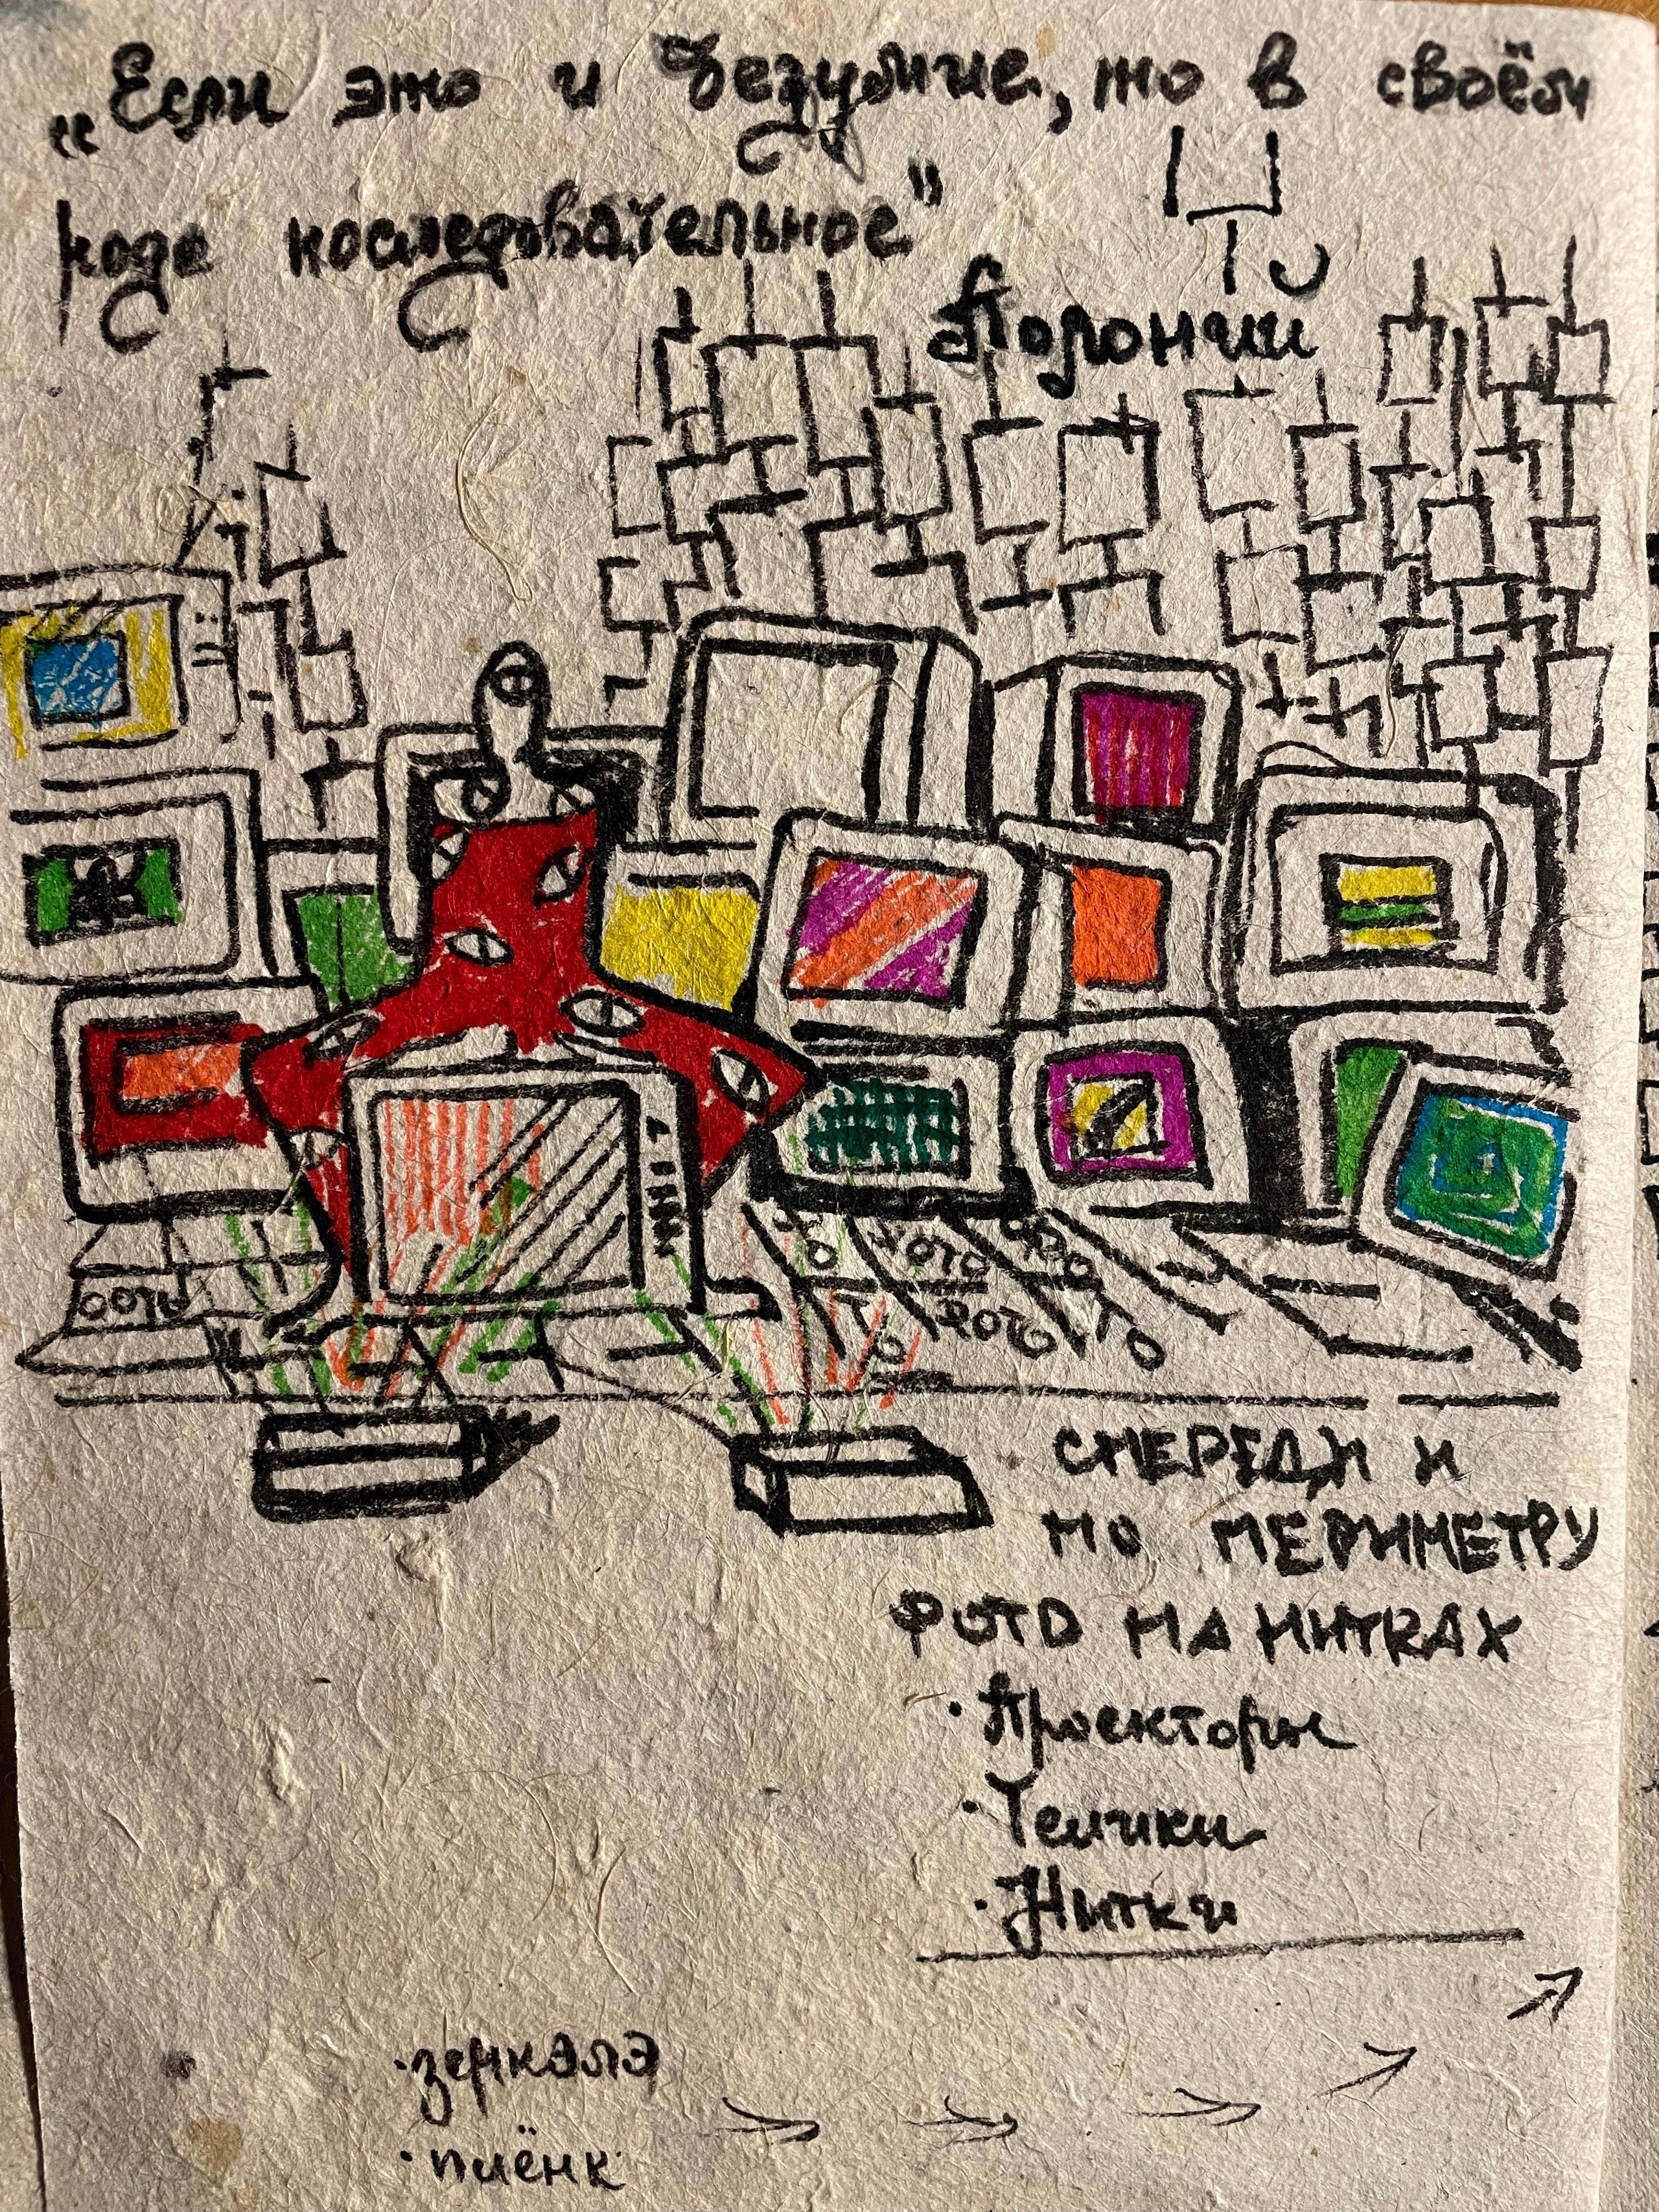 „Если это и безумие, то в своём
роде последовательное"
Полоний
фото
фото
фото
СПЕРЕДИ И
ПО ПЕРИМЕТРУ
ФОТО НА НИТКАХ
· Проекторы
· Телики
· Нитки
· зеркала
· плёнк